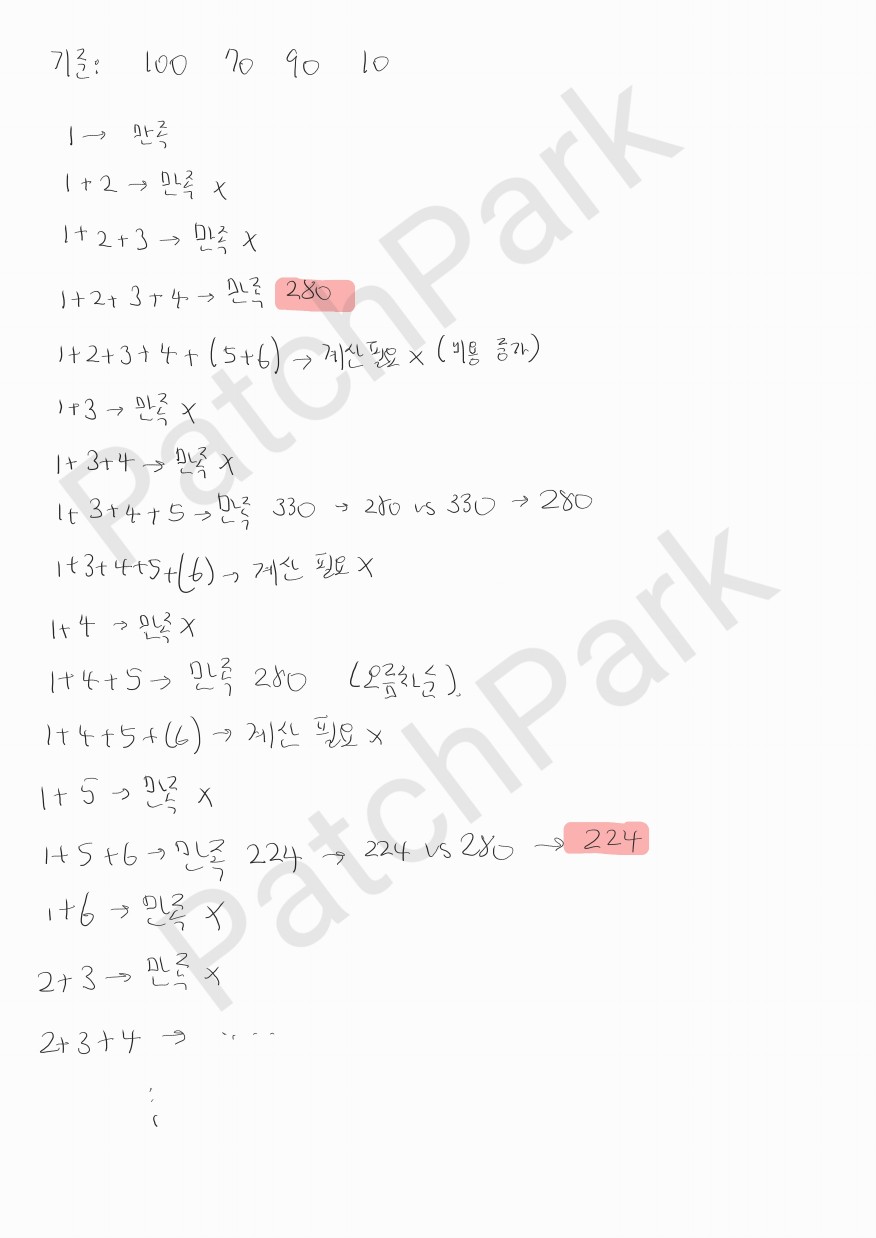 기준: 100 70 90 10
1 → 만족
1+2 → 만족 X
1+2+3 → 만족 X
1+2+3+4 → 만족 280
1+2+3+4+(5+6) → 계산필요 X (비용 증가)
1+3 → 만족 X
1+3+4 → 만족 X
1+3+4+5 → 만족 330 → 280 vs 330 → 280
1+3+4+5+(6) → 계산 필요 X
1+4 → 만족 X
1+4+5 → 만족 280 (오름차순)
1+4+5+(6) → 계산 필요 X
1+5 → 만족 X
1+5+6 → 만족 224 → 224 vs 280 → 224
1+6 → 만족 X
2+3 → 만족 X
2+3+4 → ....
⋮
PatchPark
PatchPark